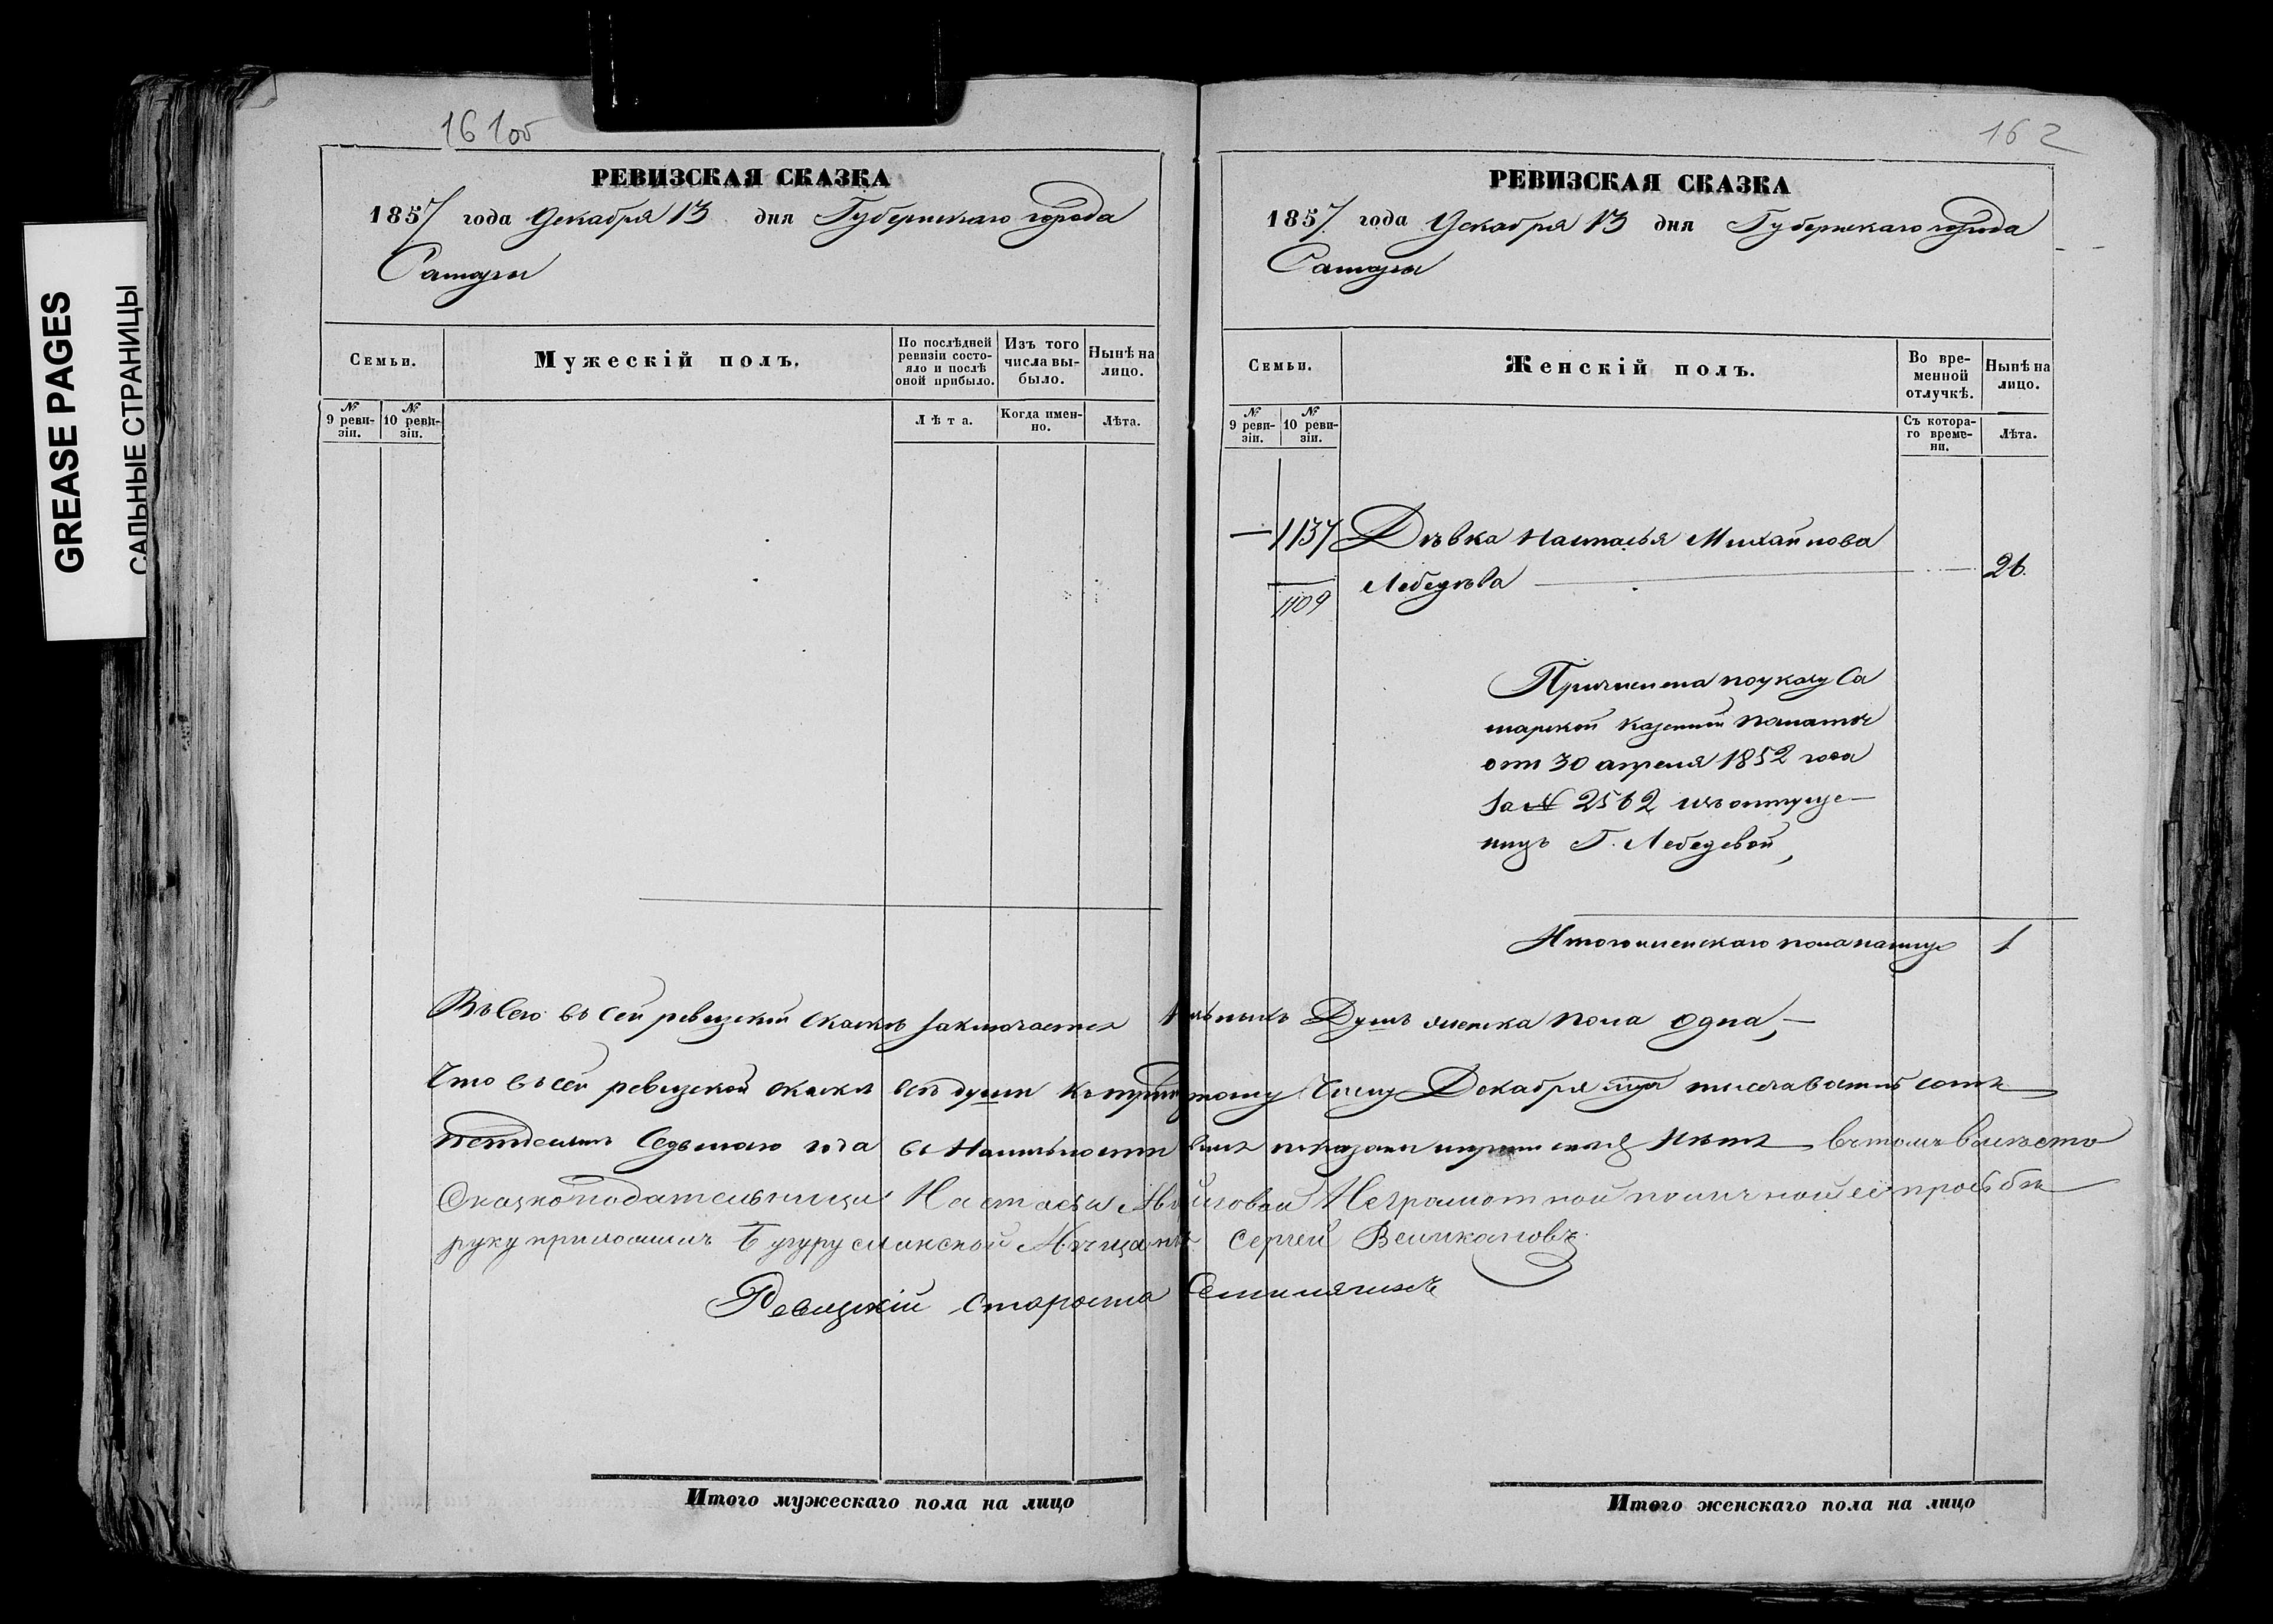 GREASE PAGES
САЛЬНЫЕ СТРАНИЦЫ
161об
РЕВИЗСКАЯ СКАЗКА
1857 года Декабря 13 дня Губернскаго города
Самары
Семьи.
Мужескій полъ.
По послѣдней ревизіи состояло и послѣ оной прибыло.
Изъ того числа выбыло.
Нынѣ на лицо.
№ 9 ревизіи.
№ 10 ревизіи.
Лѣта.
Когда именно.
Лѣта.
162
РЕВИЗСКАЯ СКАЗКА
1857 года Декабря 13 дня Губернскаго города
Самары
Семьи.
Женскій полъ.
Во временной отлучкѣ.
Нынѣ на лицо.
№ 9 ревизіи.
№ 10 ревизіи.
Съ котораго времени.
Лѣта.
— 1137 Дѣвка Настасья Михайлова
Лебедѣва — 26.
1109
Причислена по указу Са
марской Казенной палаты
отъ 30 апреля 1852 года
за № 2562 изъ отпуще-
ницъ Г. Лебедевой,
Итого женскаго пола налицо 1
Всего въ сей ревизской сказкѣ заключается душъ женска пола одна,—
Что въ сей ревизской сказкѣ всѣ души къ числу Декабря тысяча восемь сотъ
петдесятъ седьмаго года въ наличности показаны нѣтъ въ томъ вместо
Сказкоподательницы Настасьи Неграмотной по личной ее просьбѣ
руку приложилъ Бугурусланской Мѣщанинъ Сергей Великановъ
Ревизскій Староста
Итого мужескаго пола на лицо
Итого женскаго пола на лицо